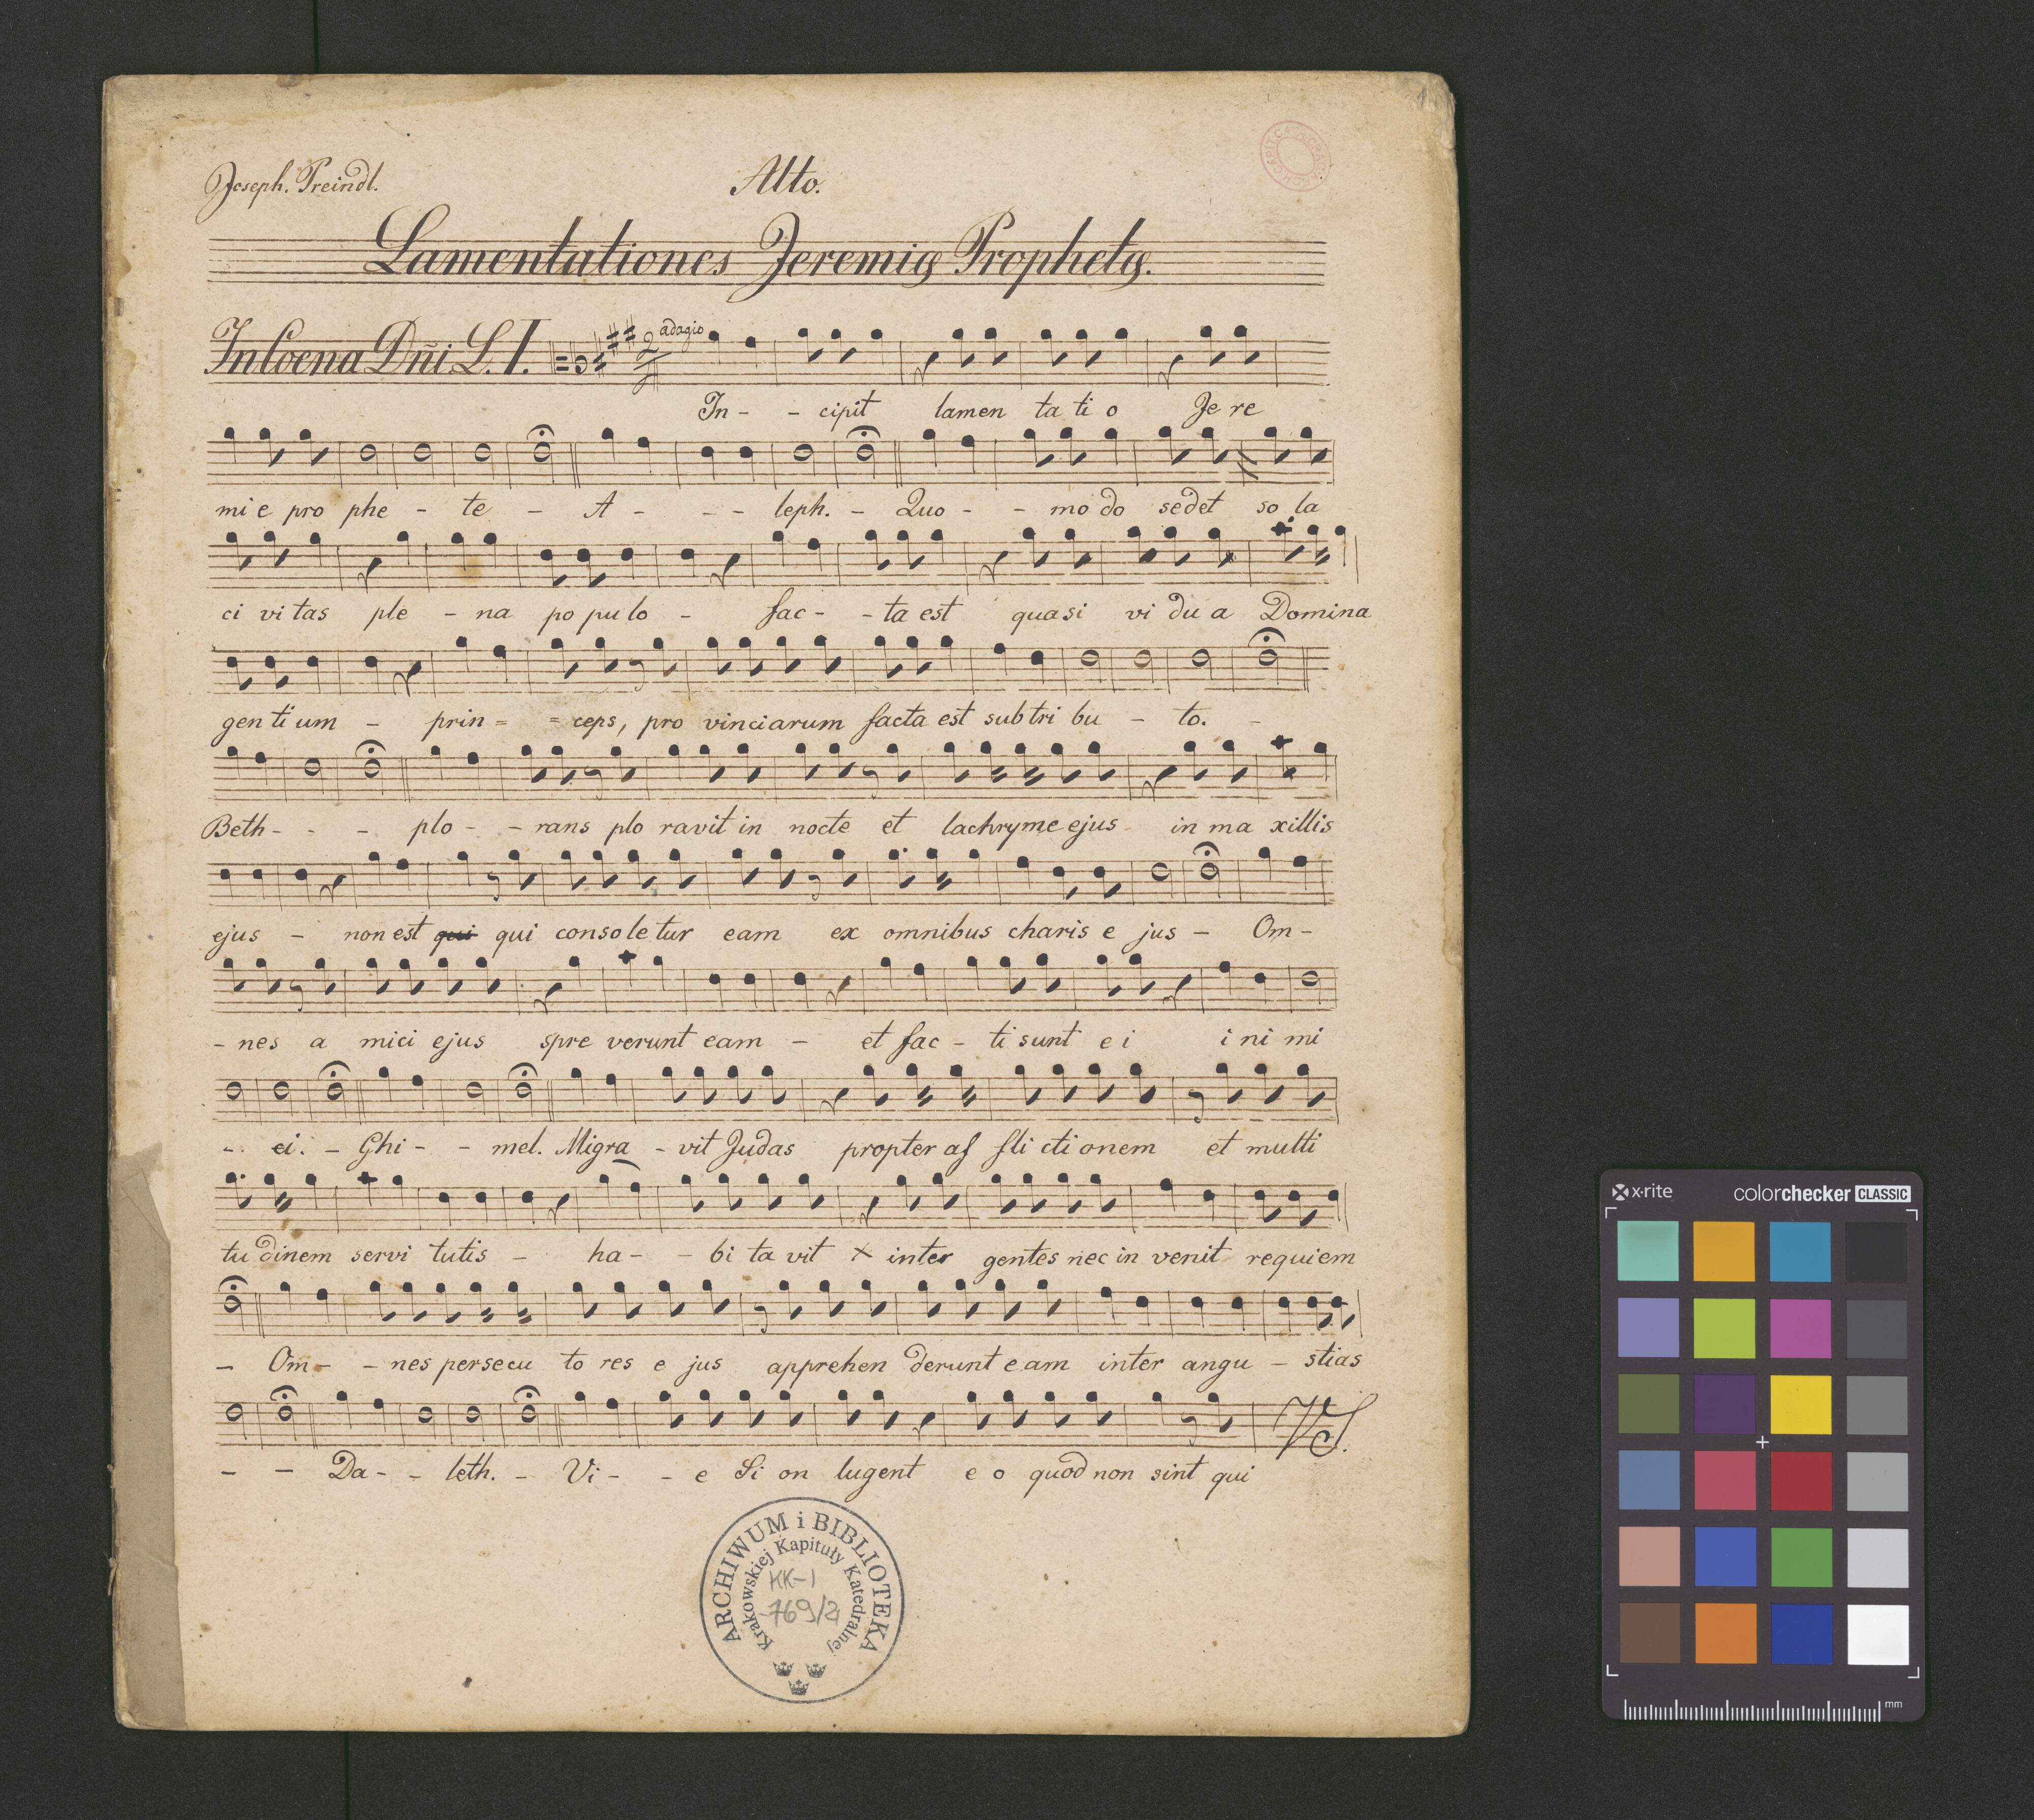 Joseph. Preindl.
Alto.
Lamentationes Jeremię Prophetę.
In Coena Dñi L. I.
adagio
In - - cipit lamen ta ti o Je re
mi e pro phe - te - A - - - leph. - Quo - - mo do sedet so la
ci vi tas ple - na po pu lo - fac - - ta est quasi vi du a Domina
gen ti um - prin = = ceps, pro vinciarum facta est sub tri bu - to. -
Beth - - - plo - - rans plo ravit in nocte et lachryme ejus in ma xillis
ejus - non est qui qui conso le tur eam ex omnibus charis e jus - Om -
- nes a mici ejus spre verunt eam - et fac - ti sunt e i i ni mi
- ei. - Ghi - - mel. Migra - vit Judas propter af fli cti onem et multi
tu dinem servi tutis - ha - - bi ta vit x inter gentes nec in venit requiem
- Om - - nes persecu to res e jus apprehen derunt e am inter angu - stias
- - Da - - leth. - Vi - - e Si on lugent e o quod non sint qui
VS.
ARCHIWUM i BIBLIOTEKA
Krakowskiej Kapituły Katedralnej
KK-I
769/2
x-rite colorchecker CLASSIC
mm